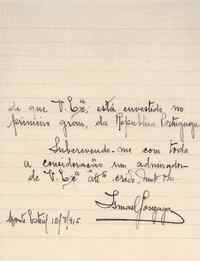 de que V. Exª. está envestido, no
primeiro grau, da Republica Portugueza
Subscrevendo-me com toda
a consideração um admirador
de V. Exª attº
Ismael
10/7/915